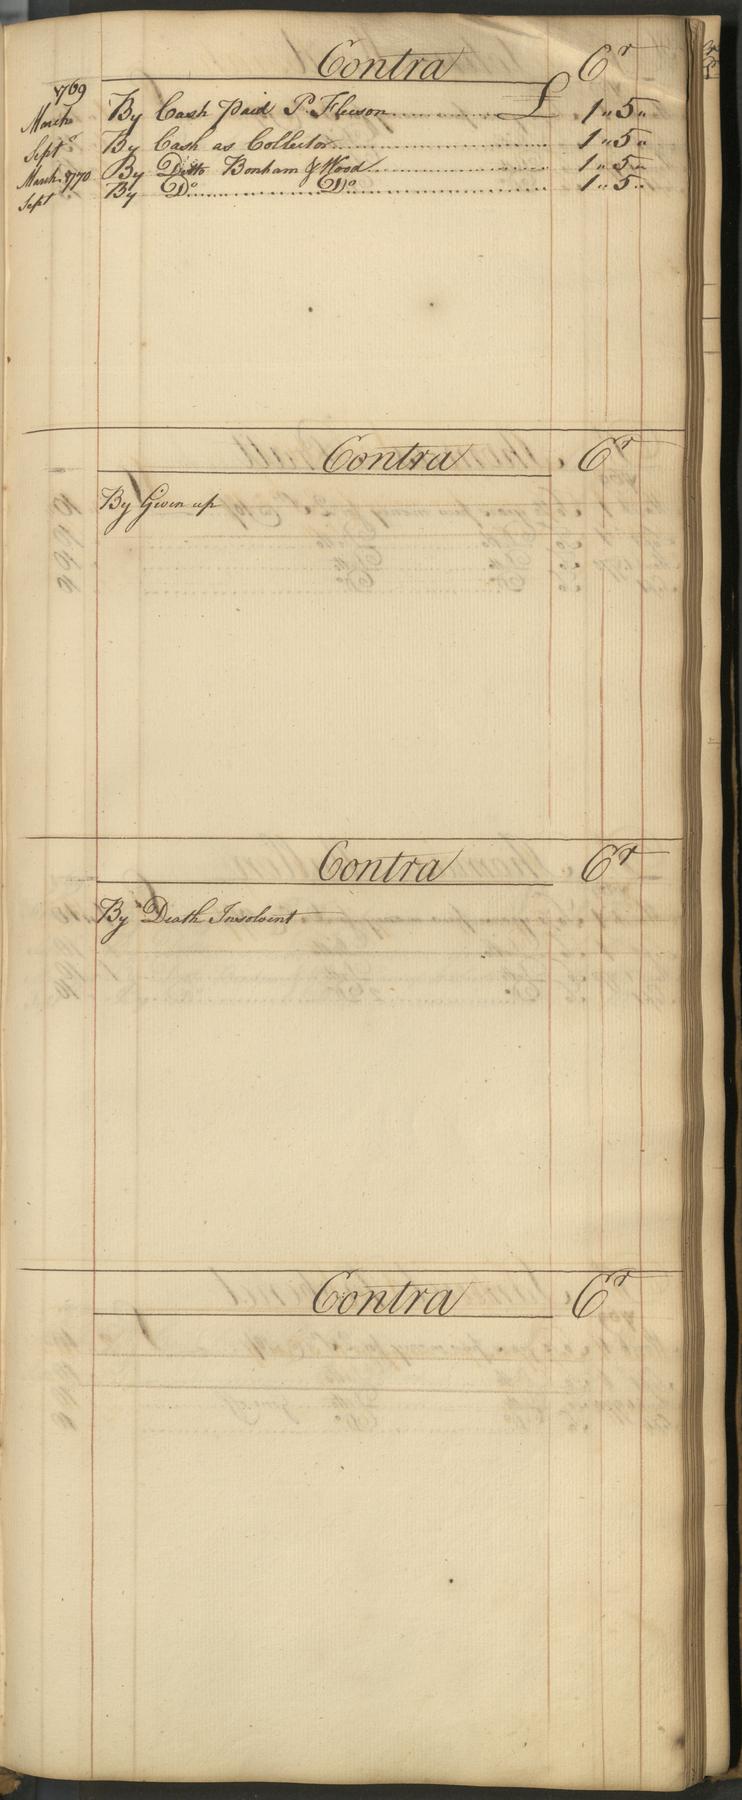 Contra Cr
1769
March By Cash paid P. Fleeson £ 1 " 5 "
Sept By Cash as Collector 1 " 5 "
March 1770 By Ditto Bonham & Wood 1 " 5 "
Sept By Do Do 1 " 5 "
Contra Cr
By Given up
Contra Cr
By Death Insolvent
Contra Cr